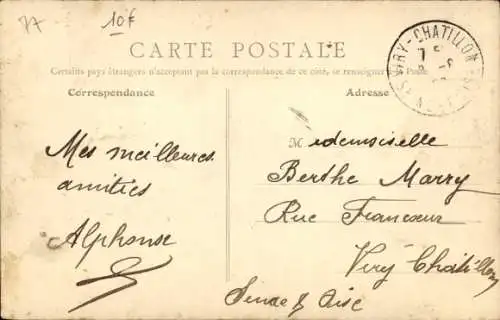 77 10F
CARTE POSTALE
Certains pays étrangers n'acceptant pas la correspondance de ce côté, se renseigner à la Poste
Correspondance
Adresse
VIRY-CHATILLON
Mes meilleures
amitiés
Alphonse
Mademoiselle
Berthe Marry
Rue Francœur
Viry Châtillon
Seine & Oise